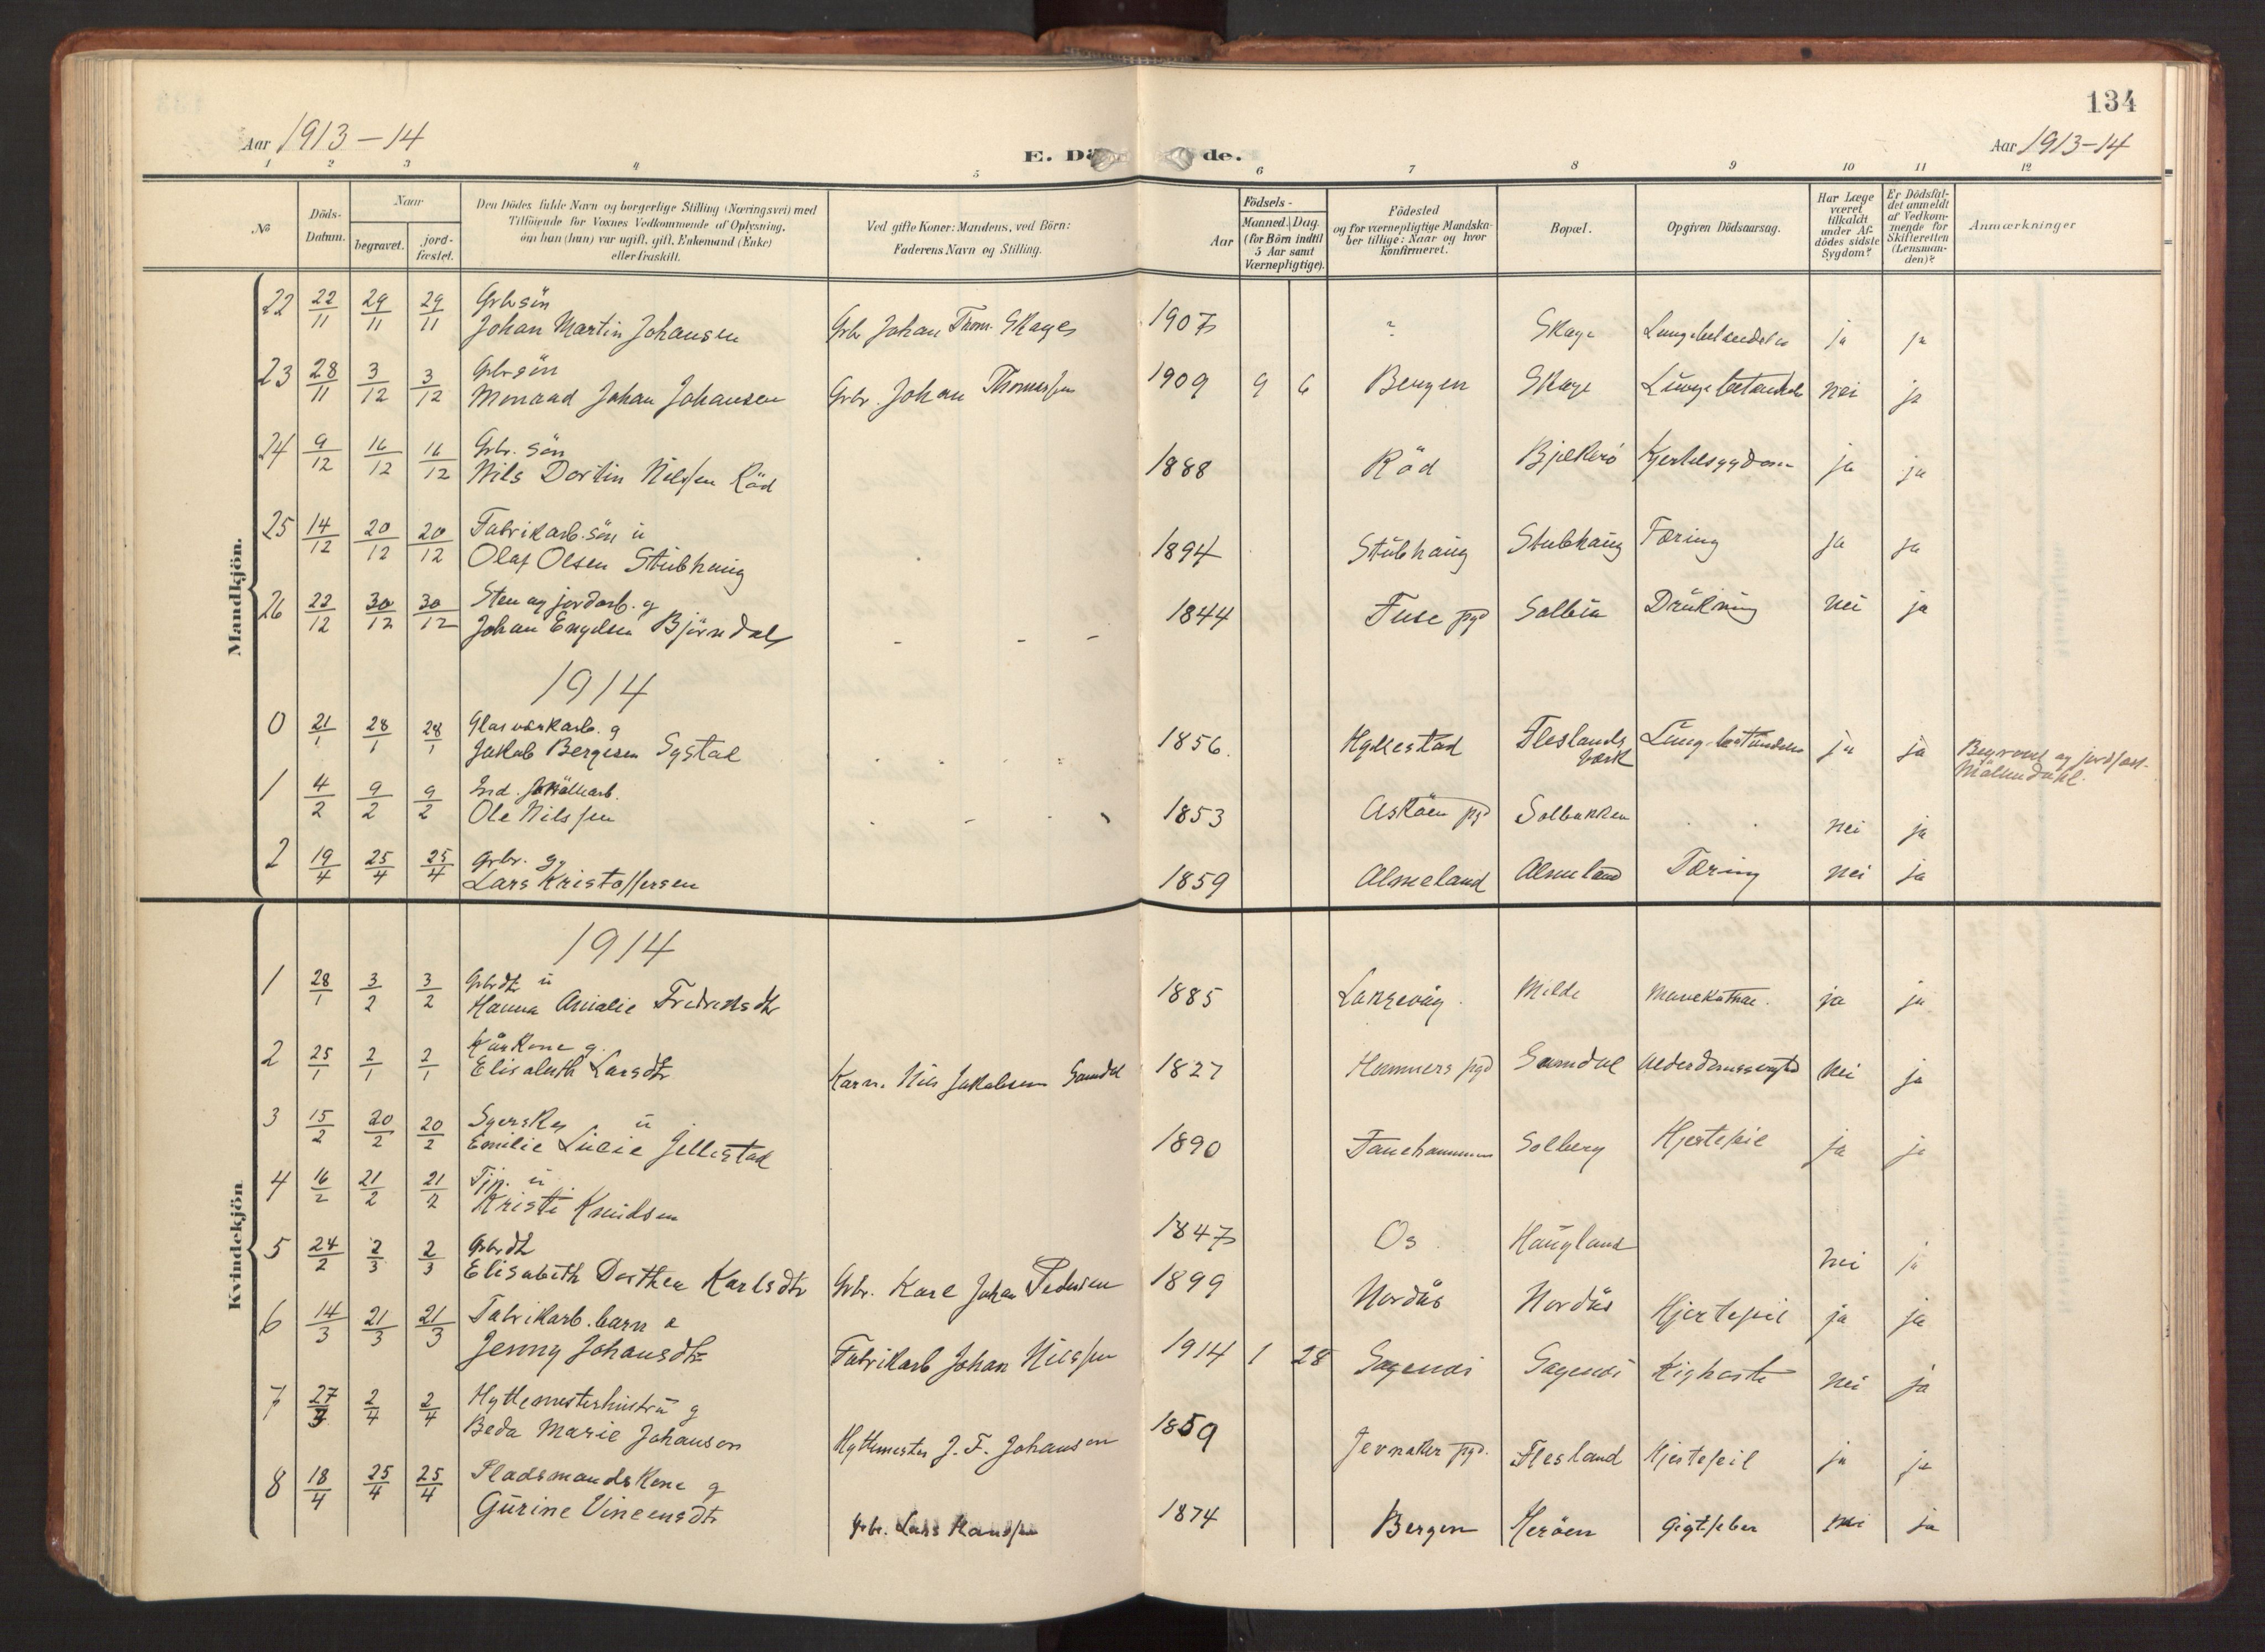 134
Aar 1913-14
E. Dö de.
Aar 1913-14
1 2 3 4 5 6 7 8 9 10 11 12
№
Döds-Datum.
Naar
begravet.
jord-fæstet.
Den Dödes fulde Navn og borgerlige Stilling (Næringsvei) med
Tilföiende for Voxnes Vedkommende af Oplysning,
om han (hun) var ugift, gift, Enkemand (Enke)
eller fraskilt.
Ved gifte Koner: Mandens, ved Börn:
Faderens Navn og Stilling.
Födsels-
Aar
Maaned. Dag.
(for Börn indtil
5 Aar samt
Værnepligtige).
Födested
og for værnepligtige Mandska-
ber tillige: Naar og hvor
konfirmeret.
Bopæl.
Opgiven Dödsaarsag.
Har Læge
været
tilkaldt
under Af-
dödes sidste
Sygdom?
Er Dödsfal-
det anmeldt
af Vedkom-
mende for
Skifteretten
(Lensman-
den)?
Anmærkninger
Mandkjön.
22 22/11 29/11 29/11 Grbr sön
Johan Martin Johansen Grbr Johan Thom. Skage 1907 ? Skage ja ja
23 28/11 3/12 3/12 Grbr sön
Monrad Johan Johansen Grbr. Johan Thomassen 1909 9 6 Bergen Skage Lungebetændelse nei ja
24 9/12 16/12 16/12 Grbr. sön
Nils Nilssen Röd 1888 Röd Bjelkerö ja ja
25 14/12 20/12 20/12 Fabrikarb. sön u
Olaf Olsen Stubhaug 1894 Stubhaug Stubhaug Tæring ja ja
26 22/12 30/12 30/12 Sten og jordarb. g
Johan Engelsen Björndal - - - 1844 Fuse pgd Solbia Drukning nei ja
1914
0 21/1 28/1 28/1 Glasværkarb. g
Jakob Bergesen Systad 1856. Hyllestad Fleslands
værk ja ja Begravet og jordfæst.
Möllendahl.
1 4/2 9/2 9/2
Ole Nilssen 1853 Asköen pgd Solbakken nei ja
2 19/4 25/4 25/4 Grbr. g
Lars Kristoffersen 1859 Almeland Almeland Tæring nei ja
Kvindekjön
1914
1 28/1 3/2 3/2 Grbrdtr u
Hanna Amalie Fredriksdtr 1885 Langevåg. Milde Mavekathar. ja ja
2 25/1 2/1 2/1 Kårkone g.
Elisabeth Larsdtr Karm. Nils Jakobsen Samdal 1827 Hammers pgd Samdal nei ja
3 15/2 20/2 20/2 Syerske u
Emilie Lucie Jellestad 1890 Fanehammeren Solberg Hjertefeil ja ja
4 16/2 21/2 21/2 Tjp. u
Kristi Knudsen 1847 Os Haugland nei ja
5 24/2 2/3 2/3 Grbrdtr
Elisabeth Dorthea Karlsdtr Grbr. Karl Johan Pedersen 1899 Nordås Nordås Hjertefeil ja ja
6 14/3 21/3 21/3 Fabrikarb. barn
Jenny Johansdtr Fabrikarb Johan Nilssen 1914 1 28 Kighoste nei ja
7 27/3 2/4 2/4 Hyttemesterhustru g
Beda Marie Johanson Hyttemester J. F. Johanson 1859 Jevnaker pgd. Flesland Hjertefeil ja ja
8 18/4 25/4 25/4 Pladsmandskone g
Gurine Vincensdtr Grbr. Lars Hanssen 1874 Bergen Heröen Gigtfeber nei ja